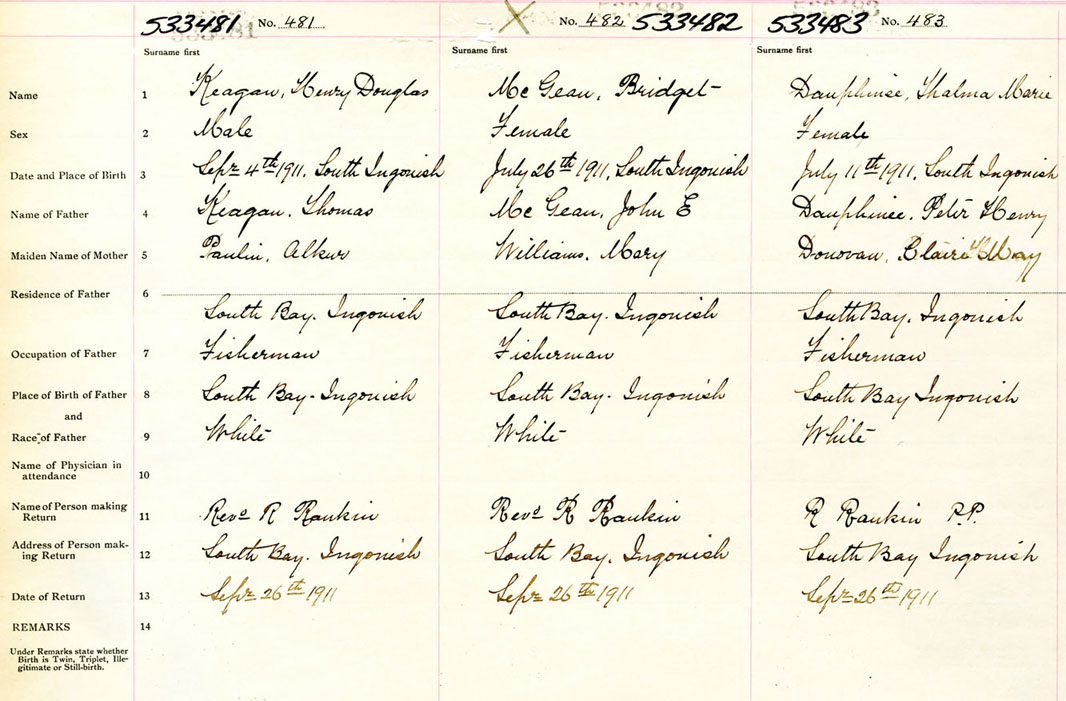 533481 No. 481 No. 482 533482 533483 No. 483
Surname first Surname first Surname first
Name 1 Keagan, Henry Douglas Mc Gean, Bridget Dauphinee, Thalma Marie
Sex 2 Male Female Female
Date and Place of Birth 3 Sepr 4th 1911, South Ingonish July 26th 1911, South Ingonish July 11th 1911, South Ingonish
Name of Father 4 Keagan, Thomas Mc Gean, John E Dauphinee, Peter Henry
Maiden Name of Mother 5 Paulin, Williams, Mary Donovan, Claire May
Residence of Father 6
South Bay. Ingonish South Bay. Ingonish South Bay. Ingonish
Occupation of Father 7 Fisherman Fisherman Fisherman
Place of Birth of Father 8 South Bay - Ingonish South Bay - Ingonish South Bay Ingonish
and
Race of Father 9 White White White
Name of Physician in
attendance 10
Name of Person making
Return 11 Revd R Rankin Revd R Rankin R Rankin P.P.
Address of Person mak-
ing Return 12 South Bay. Ingonish South Bay. Ingonish South Bay Ingonish
Date of Return 13 Sepr 26th 1911 Sepr 26th 1911 Sepr 26th 1911
REMARKS 14
Under Remarks state whether
Birth is Twin, Triplet, Ille-
gitimate or Still-birth.